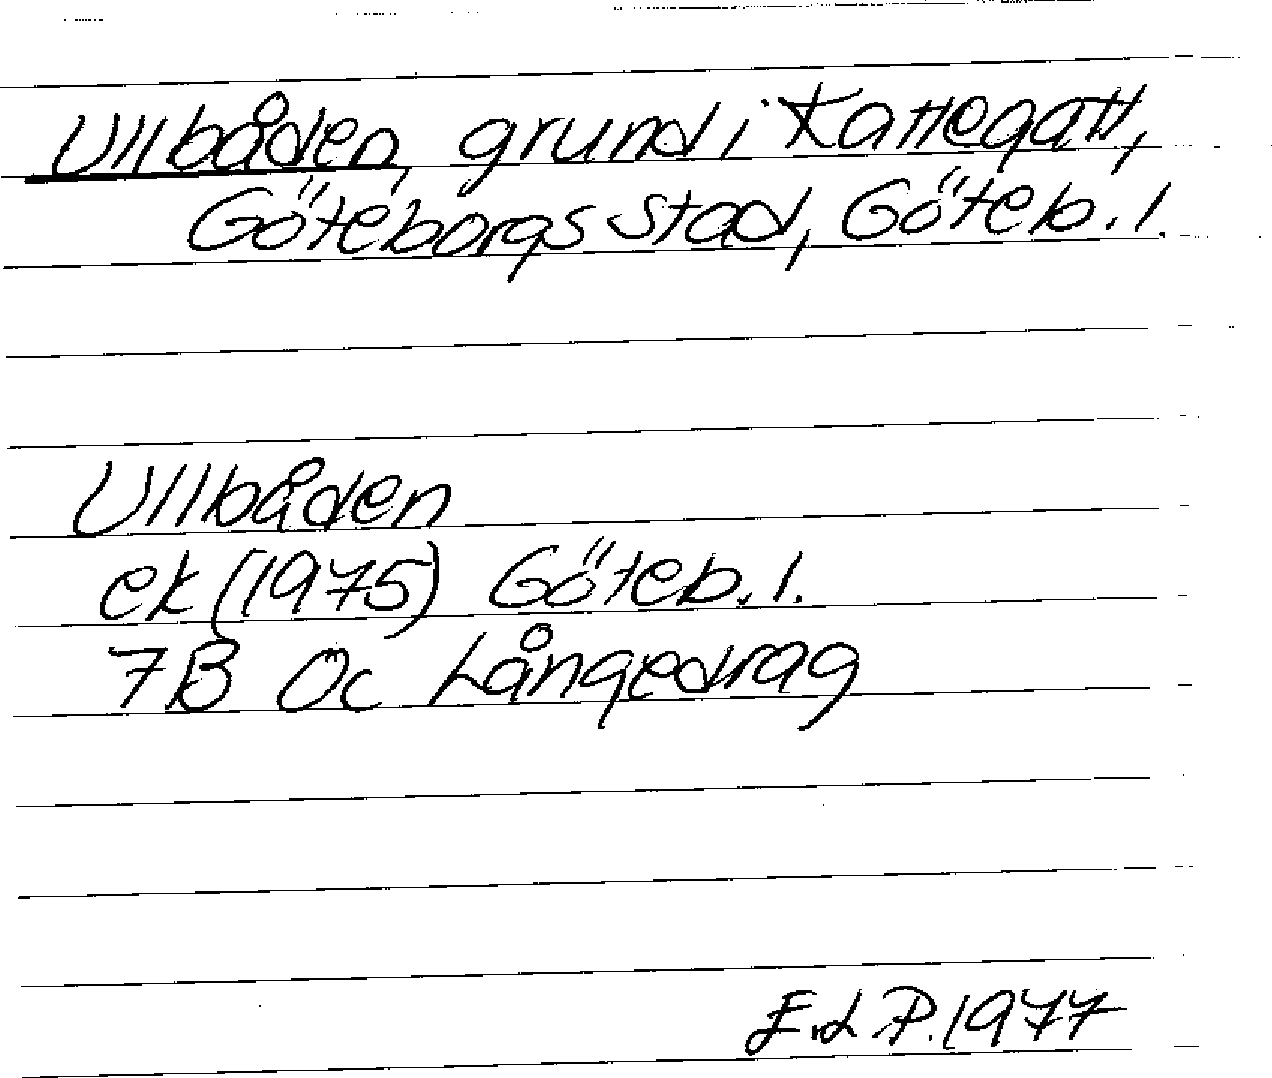 Ullbåden, grund i Kattegatt,
Göteborgs stad, Göteb. l.
Ullbåden
ek (1975) Göteb. l.
7B Öc Långedrag
E.d P. 1977